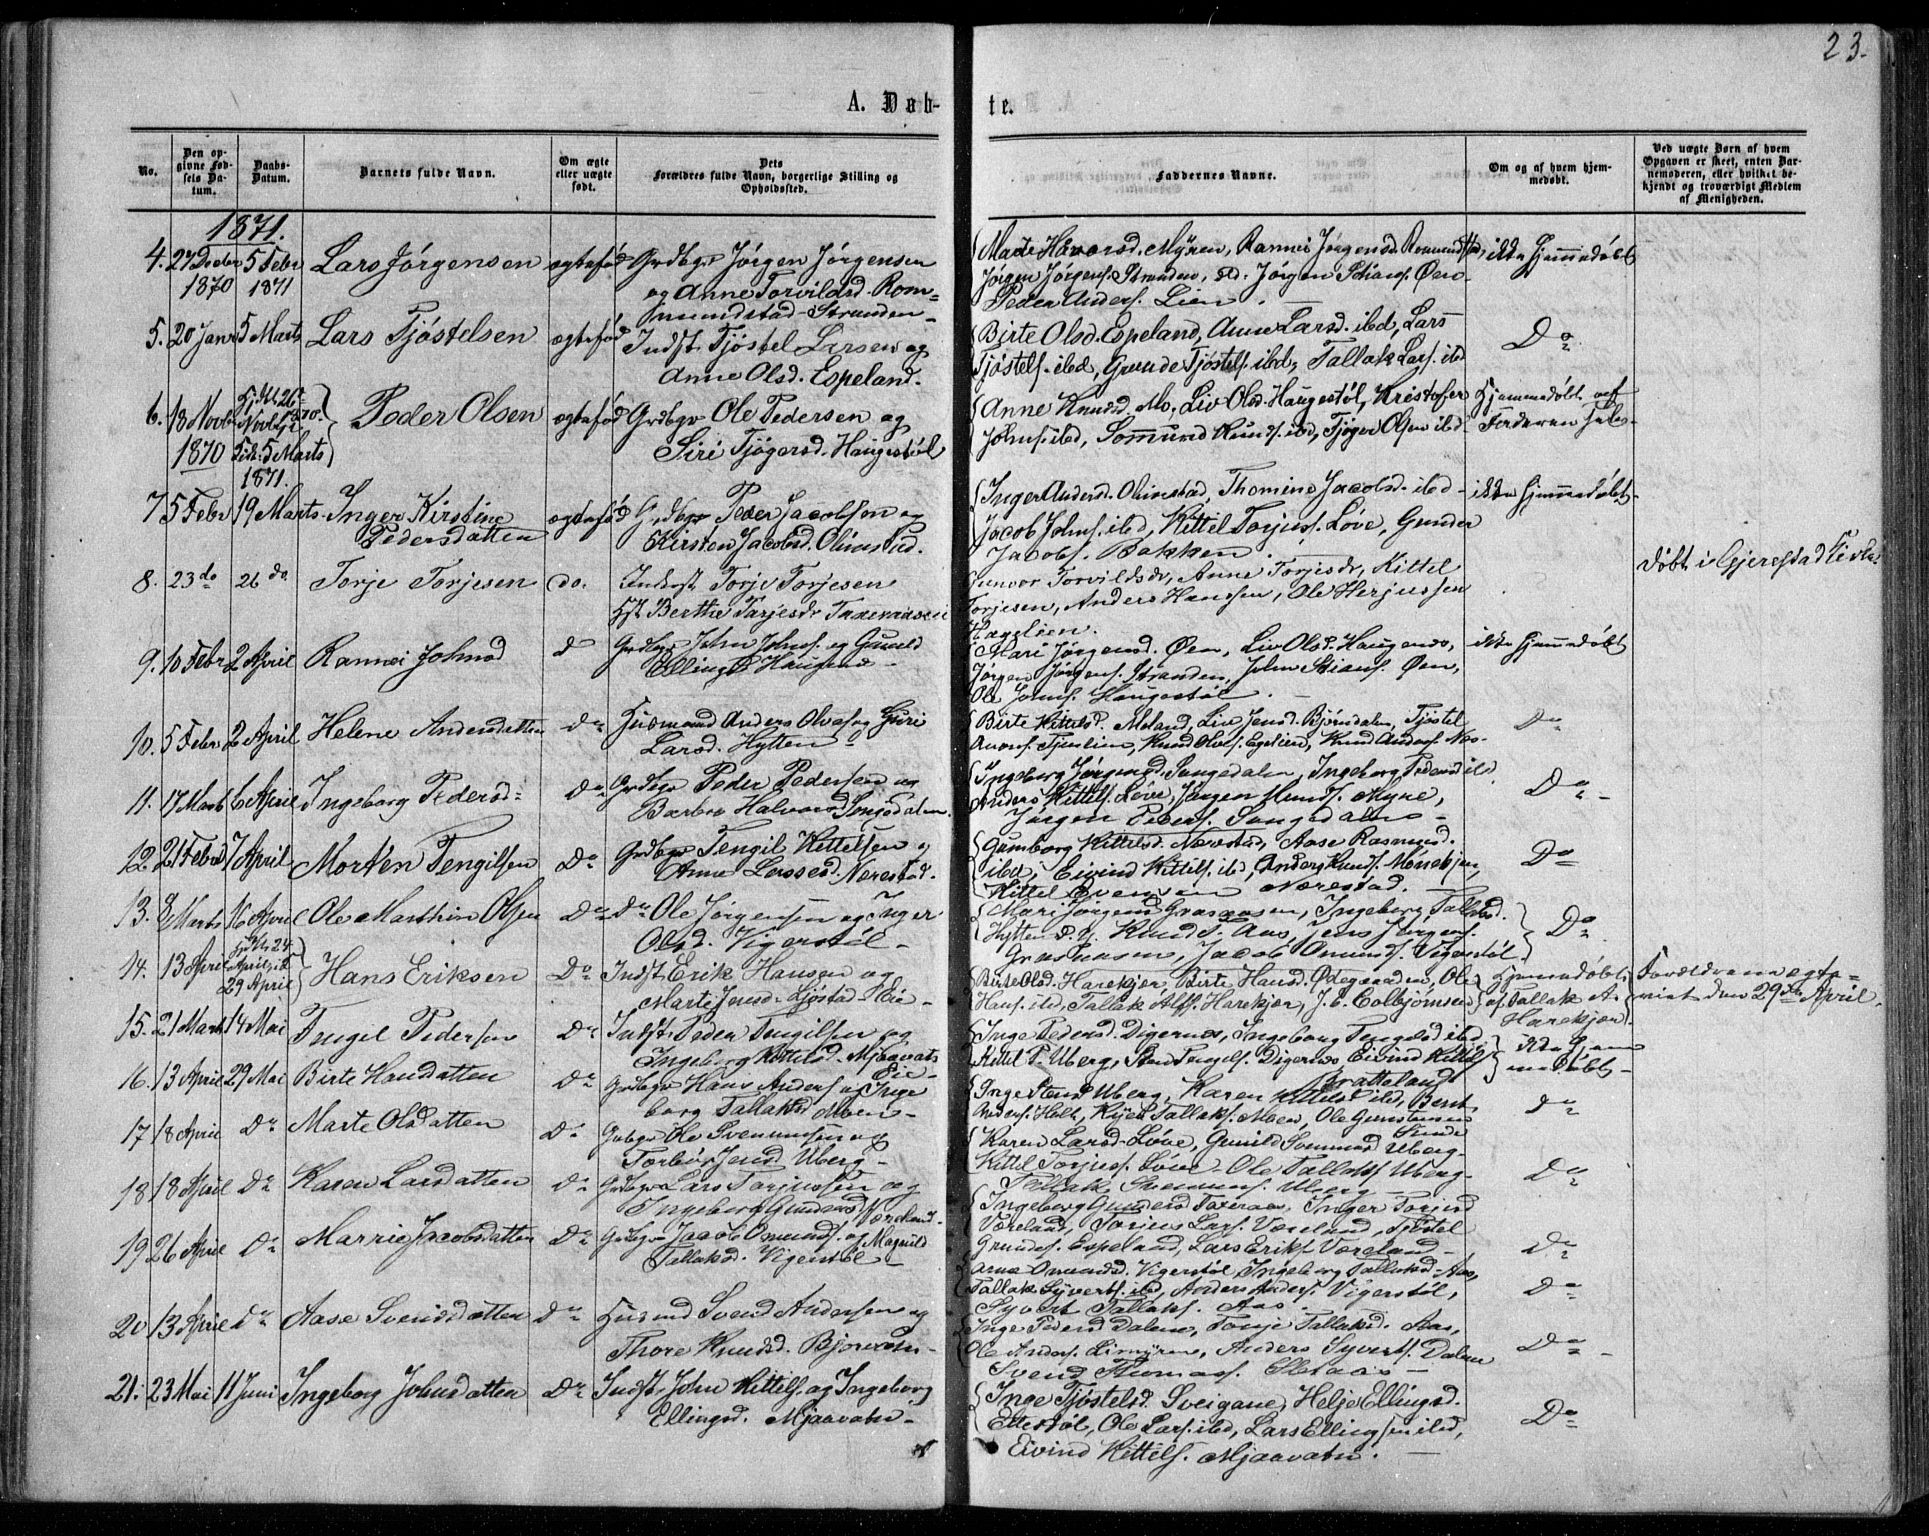 23.
A. Døb-
te.
No.
Den op-
givne Fød-
sels Da-
tum.
Daabs-
Datum.
Barnets fulde Navn.
Om ægte
eller uægte
født.
Dets
Forældres fulde Navn, borgerlige Stilling og
Opholdssted.
Faddernes Navne.
Om og af hvem hjem-
medøbt.
Ved uægte Børn af hvem
Opgaven er skeet, enten Bar-
nemoderen, eller hvilket be-
kjendt og troværdigt Medlem
af Menigheden.
1871.
4. 27 Decbr 1870
5 Febr 1871
Lars Jørgensen
ægtefød
Grdbgr Jørgen Jørgensen
og Anne Torvildsd. Rom-
mundstad-Stranden-
Jørgen Jørgens. Stranden, Jørgen Øen
Peder Anders. Lien.
ikke hjemmedøbt
5. 20 Janr 5 Marts
Lars Tjøstelsen
ægtefød
Indst. Tjøstel Larsen og
Anne Olsd. Espeland.
Birte Olsd. Espeland, Anne Larsd. ibd, Lars
Tjøstels. ibd, Grunde Tjøstels. ibd, Tallak Lars. ibd
Do
6. 18 Novb 1870
26 Novbr 1870
5 Marts 1871.
Peder Olsen
ægtefød
Grdbgr Ole Pedersen og
Siri Tjøgersd. Haugestøl
Anne Knudsd. Mo, Liv Olsd. Haugestøl, Kristofer
Johns. ibd, Sommund Knuds. ibd, Tjøger Olsen ibd
Hjemmedøbt af
Forderen
7. 5 Febr 19 Marts
Inger Kirstine
Pedersdatten
ægtefød
Grdbgr Peder Jacobsen og
Kirsten Jacobsd. Olimstad.
Inger Andersd. Olimstad, Thomine Jacobsd. ibd
Jacob Johns. ibd, Kittel Torjus. Løve, Gunder
Jacobs. Bakken.
ikke hjemmedøbt
8. 23 do 26 do.
Torje Torjesen
do.
Inderst Torje Torjesen
Berthe Torjesdr
Gunvor Torvildsdr, Anne Torjesdr, Kittel
Torjesen, Anders Hanssen, Ole Herjussen
Hægelien.
Døbt i Gjerestad
9. 10 Febr 2 April
Rannei Johnsd
Do
Grdbgr John Johns. og Gunild
Ellingsd Haugene
Mari Jørgensd. Øen, Liv Olsd. Haugene,
Jørgen Jørgens. Stranden, John Stians. Øen,
Ole Johns. Haugestøl.
ikke hjemmedøbt
10. 5 Febr 2 April
Helene Andersdatten
Do
Husmand Anders Olvs. og Guri
Larsd. Hytten
Birte Kittelsd. Meland, Liv Jensd. Bjønsdalen, Tjøstel
Knud Olvs. Egelien, Knud Anders. Næs
Do
11. 17 Marts 6 April
Ingeborg Pedersd
Do
Grdbgr Peder Pedersen og
Barbro Halvorsd Songedalen.
Ingeborg Jørgensd. Songedalen, Ingeborg Pedersd ibd
Anders Kittels. Løve, Jørgen Knuds. Myre,
Jørgen Peders. Songedalen
Do
12. 21 Febr 7 April
Morten Tengilsen
Do
Grdbgr Tengil Kittelsen og
Anne Larsesd. Nærestad.
Gumborg Kittelsd. Nærestad, Aase Rasmusd.
ibd, Eivind Kittels. ibd, Anders Knuds. Mønekjær,
Kittel Evensen Nærestad.
Do
13. 8 Marts 16 April
Ole Marthin Olsen
Do
Do Ole Jørgensen og Inger
Olsd. Vigerstøl
Mari Jørgensd Graskaasen, Ingeborg Tallaksd.
Hytten, Knud S. Aas, Jens Jørgens.
Graskaasen, Jacob Omunds. Vigerstøl
Do
14. 13 April
24 April
29 April
Hans Eriksen
Do
Indst Erik Hansen og
Marte Jensd. Ljøstad Eie
Birte Olsd. Harekjær, Birte Hansd. Ødegaarden, Ole
Hans. ibd, Tallak Alfs. Harekjær, J. E. Colbjørnsen
Hjemmedøbt
af Tallak A.
Harekjær.
Forældrene ægte-
viet den 29de April.
15. 21 Marts 14 Mai
Tengel Pedersen
Do
Indst. Peder Tengilsen og
Ingeborg Kittelsd. Mjaavats
Eie
Inge Pedersd. Digernes, Ingeborg Tengelsd ibd
Kittel P. Uberg, Sten Tengels. Digernes, Eivind Kittels
Bratteland
ikke hjem
medøbt
16. 13 April 29 Mai
Birte Hansdatten
Do
Grdbgr Hans Anders. og Inge
borg Tallaksd Moen
Inge Stensd Uberg, Karen Kittelsd ibd, Bent
Anders. Holt, Kjøen Tallaks. Moen, Ole Gunstensen
Sunde
Do
17. 18 April Do
Marte Olsdatten
Do
Grdbgr Ole Svenumsen og
Torbør Jensd. Uberg
Karen Larsd. Løve, Gunild Sommensd Uberg
Kittel Torjus. Løve, Ole Tallaks Uberg
Tallak Svenums. Uberg
Do
18. 18 April Do
Karen Larsdatten
Do
Grdbgr Lars Torjussen og
Ingeborg Gundersd Væreland
Ingeborg Gundersd Toreraas, Inger Torjusd
Væreland, Torjus Lars. Væreland, Tjøstel
Grundes. Espeland, Lars Eriks. Væreland
Do
19. 26 April Do
Marrie Jacobsdatten
Do
Grdbgr Jacob Omunds. og Magnild
Tallaksd. Vigerstøl
Omundsd. Vigerstøl, Ingeborg Tallaksd. Aas,
Tallak Syverts. ibd, Anders Anders. Vigerstøl,
Syvert Tallaks. Aas.
Do
20. 13 April Do
Aase Svendsdatten
Do
Husmd Svend Andersen og
Thore Knudsd. Bjorvatn
Inge Pedersd Dalen, Tonje Tallaksd. Aas,
Ole Anders. Limyrene, Anders Syverts. Dalen
Svend Thomas.
Do
21. 23 Mai 11 Juni
Ingeborg Johnsdatten
Do
Indst. John Kittels. og Ingeborg
Ellingsd. Mjaavatn
Inge Tjøstelsd. Sveigane, Helje Ellingsd.
Ettestøl, Ole Lars. ibd, Lars Ellingsen ibd,
Eivind Kittels. Mjaavatn.
Do